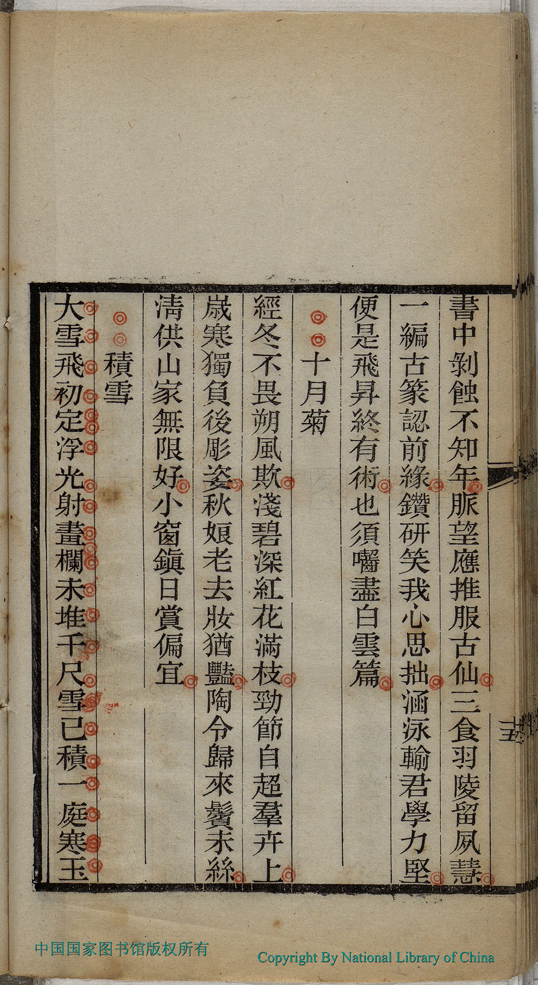 書中剝蝕不知年脈望應推服古仙三食羽陵留夙慧
一編古篆認前緣鑽研笑我心思拙涵泳輸君學力堅
便是飛昇終有術也須嚼盡白雲篇
十月菊
經冬不畏朔風欺淺碧深紅花滿枝勁節自超羣卉上
歲寒獨負後彫姿秋娘老去妝猶豔陶令歸來鬢未絲
清供山家無限好小窗鎮日賞偏宜
積雪
大雪飛初定浮光射畫欄未堆千尺雪已積一庭寒玉
十五
中国国家图书馆版权所有
Copyright By National Library of China